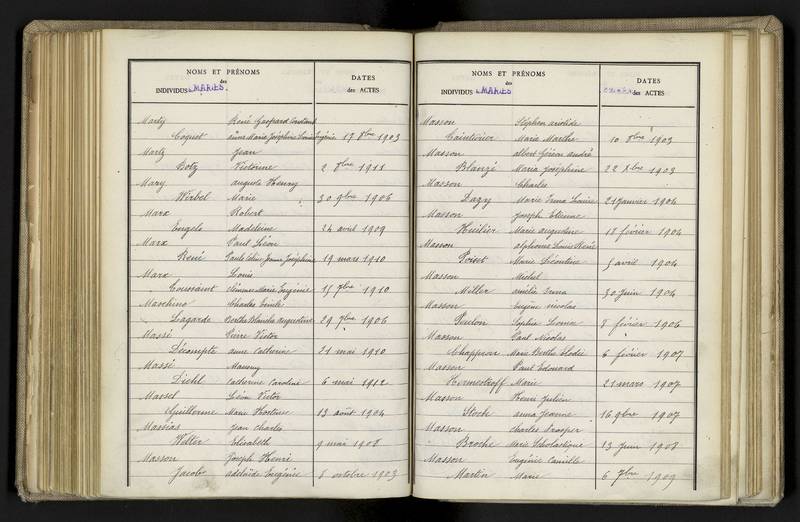 NOMS ET PRÉNOMS
des
INDIVIDUS MARIÉS
DATES
des ACTES
Marty René Gaspard
Coquet Marie Joséphine Louise Eugénie 17 8bre 1903
Martz Jean
Botz Victorine 2 8bre 1911
Mary auguste Henry
Wirbel Marie 30 9bre 1906
Marx Robert
Engels Madeleine 24 avril 1909
Marx Paul Léon
René Paule Céline Jeanne Joséphine 19 mars 1910
Marx Louis
Toussaint Marie Eugénie 15 7bre 1910
Maschino Charles Emile
Lagarde Berthe Blanche augustine 29 7bre 1906
Massé Pierre Victor
Décompte anne Catherine 21 mai 1910
Massé
Diehl Catherine Caroline 6 mai 1912
Massel Léon Victor
Guillerme Marie Hortense 13 août 1904
Massias Jean Charles
Wilter Elisabeth 9 mai 1908
Masson Joseph Henri
Jacobs adélaïde Eugénie 8 octobre 1903
NOMS ET PRÉNOMS
des
INDIVIDUS MARIÉS
DATES
des ACTES
Masson Stéphen aristide
Marie Marthe 10 8bre 1903
Masson albert André
Blanzé Marie Joséphine 22 Xbre 1903
Masson Charles
Dazy Marie Irma Louise 21 janvier 1904
Masson Joseph Etienne
Huilier Marie augustine 18 février 1904
Masson alphonse Louis René
Poiset Marie Léontine 5 avril 1904
Masson Michel
Miller amélie Irma 30 juin 1904
Masson Eugène Nicolas
Poulon Sophie 8 février 1906
Masson Paul Nicolas
Choppron Marie Berthe Elodie 6 février 1907
Masson Paul Edouard
Hermestroff Marie 21 mars 1907
Masson Henri Julien
Stock anna Jeanne 16 9bre 1907
Masson Charles Prosper
Broche Marie Scholastique 13 juin 1908
Masson Eugénie Camille
Martin Marie 6 7bre 1909